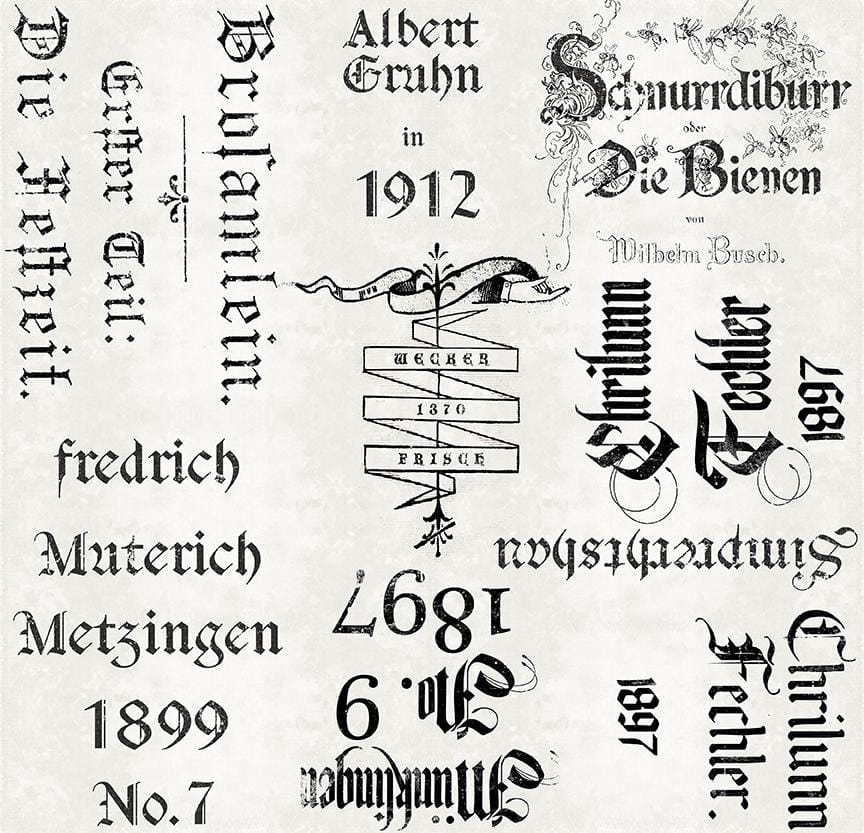 Broſamlein.
Erſter Teil:
Die Feſtzeit.
Albert
Gruhn
in
1912
Schnurrdiburr
oder
Die Bienen
von
Wilhelm Busch.
WECKER
1370
FRISCH
Chrilunn
Fechler
1897
fredrich
Muterich
Metzingen
1899
No. 7
Simprechtshau
Münklingen
No. 6
1897
Chrilunn
Fechler.
1897